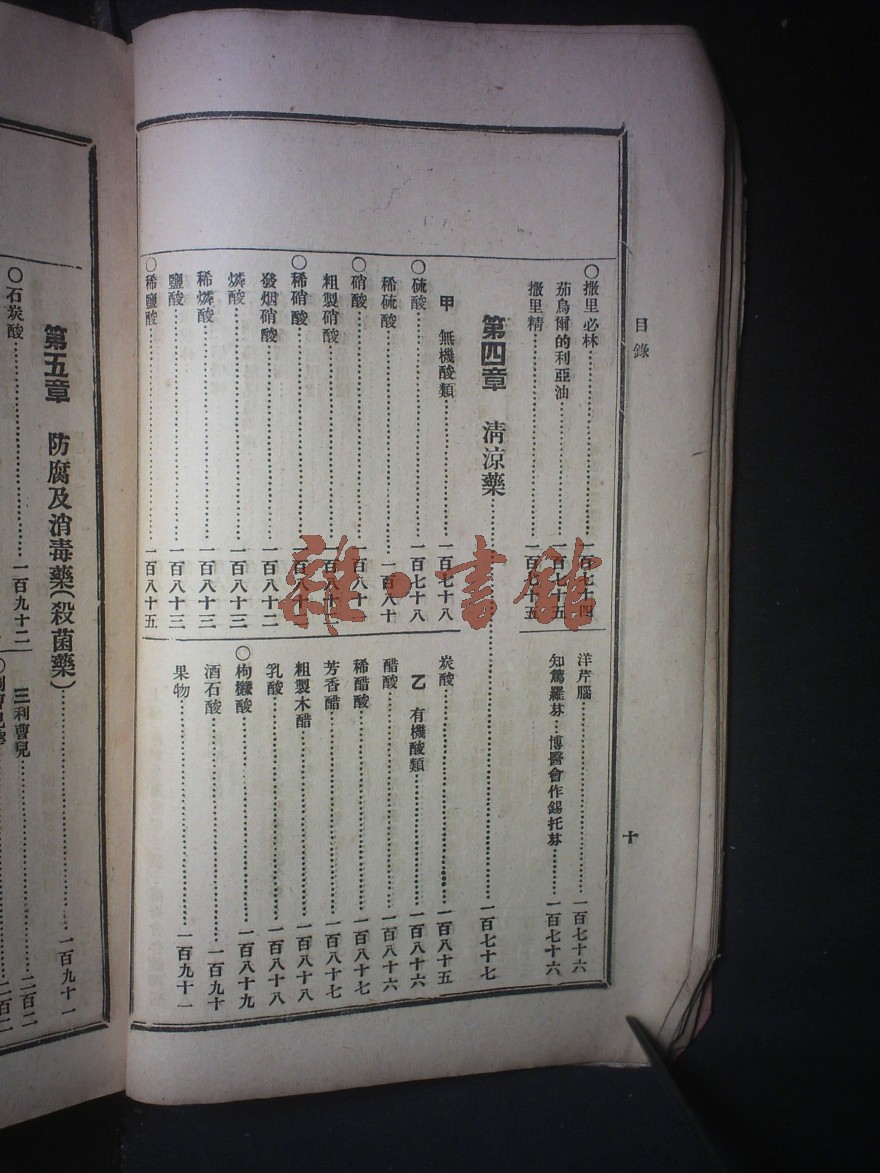 目錄
十
○撒里必林 一百七十四
茄烏爾的利亞油 一百七十五
撒里精 一百七十五
洋芹腦 一百七十六
知篤羅芬 博醫會作錫托芬 一百七十六
第四章 清涼藥 一百七十七
甲 無機酸類 一百七十八
○硫酸 一百七十八
稀硫酸 一百八十
○硝酸 一百八十一
粗製硝酸
○稀硝酸
發烟硝酸 一百八十二
燐酸 一百八十三
稀燐酸 一百八十三
鹽酸 一百八十三
○稀鹽酸 一百八十五
炭酸 一百八十五
乙 有機酸類 一百八十六
醋酸 一百八十六
稀醋酸 一百八十七
芳香醋 一百八十七
粗製木醋 一百八十八
乳酸 一百八十八
○枸櫞酸 一百八十九
酒石酸 一百九十
果物 一百九十一
第五章 防腐及消毒藥(殺菌藥) 一百九十一
○石炭酸 一百九十二
三利曹兒 二百二
雜·書館